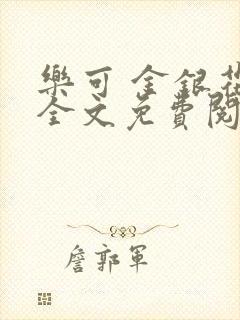 樂可 金銀花
全文免費閱
詹郭軍